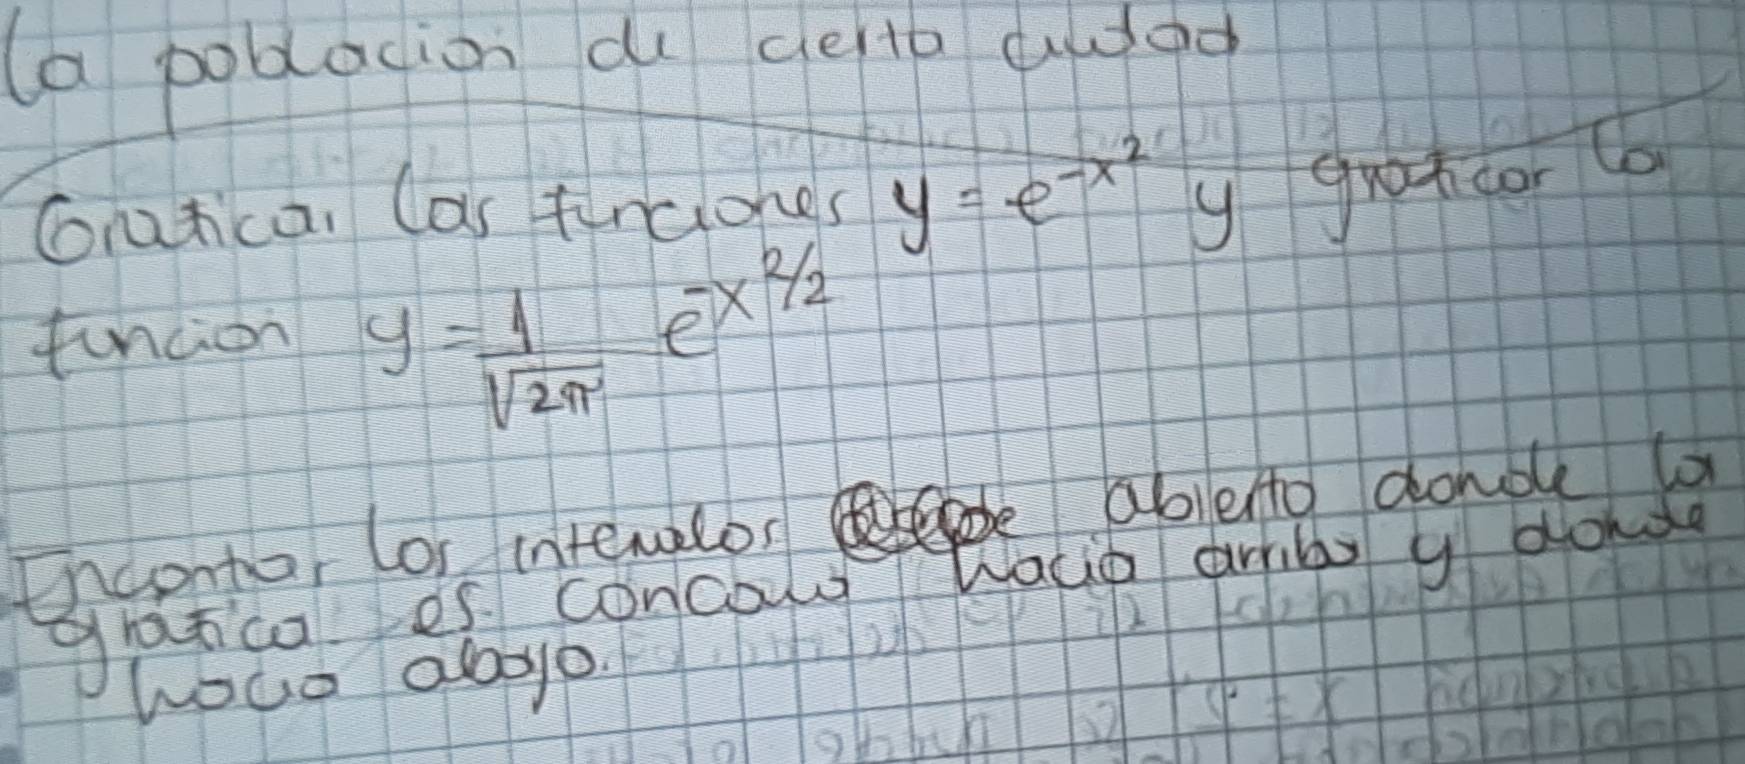 la poblacion de cierta ciudad
Graficar las funciones y = e^{-x^2} y graficar la
funcion y = \frac{1}{\sqrt{2\pi}} e^{-x^2/2}
Encontrar los intervalos abierto donde la
grafica es concava hacia arriba y donde
hacia abajo.